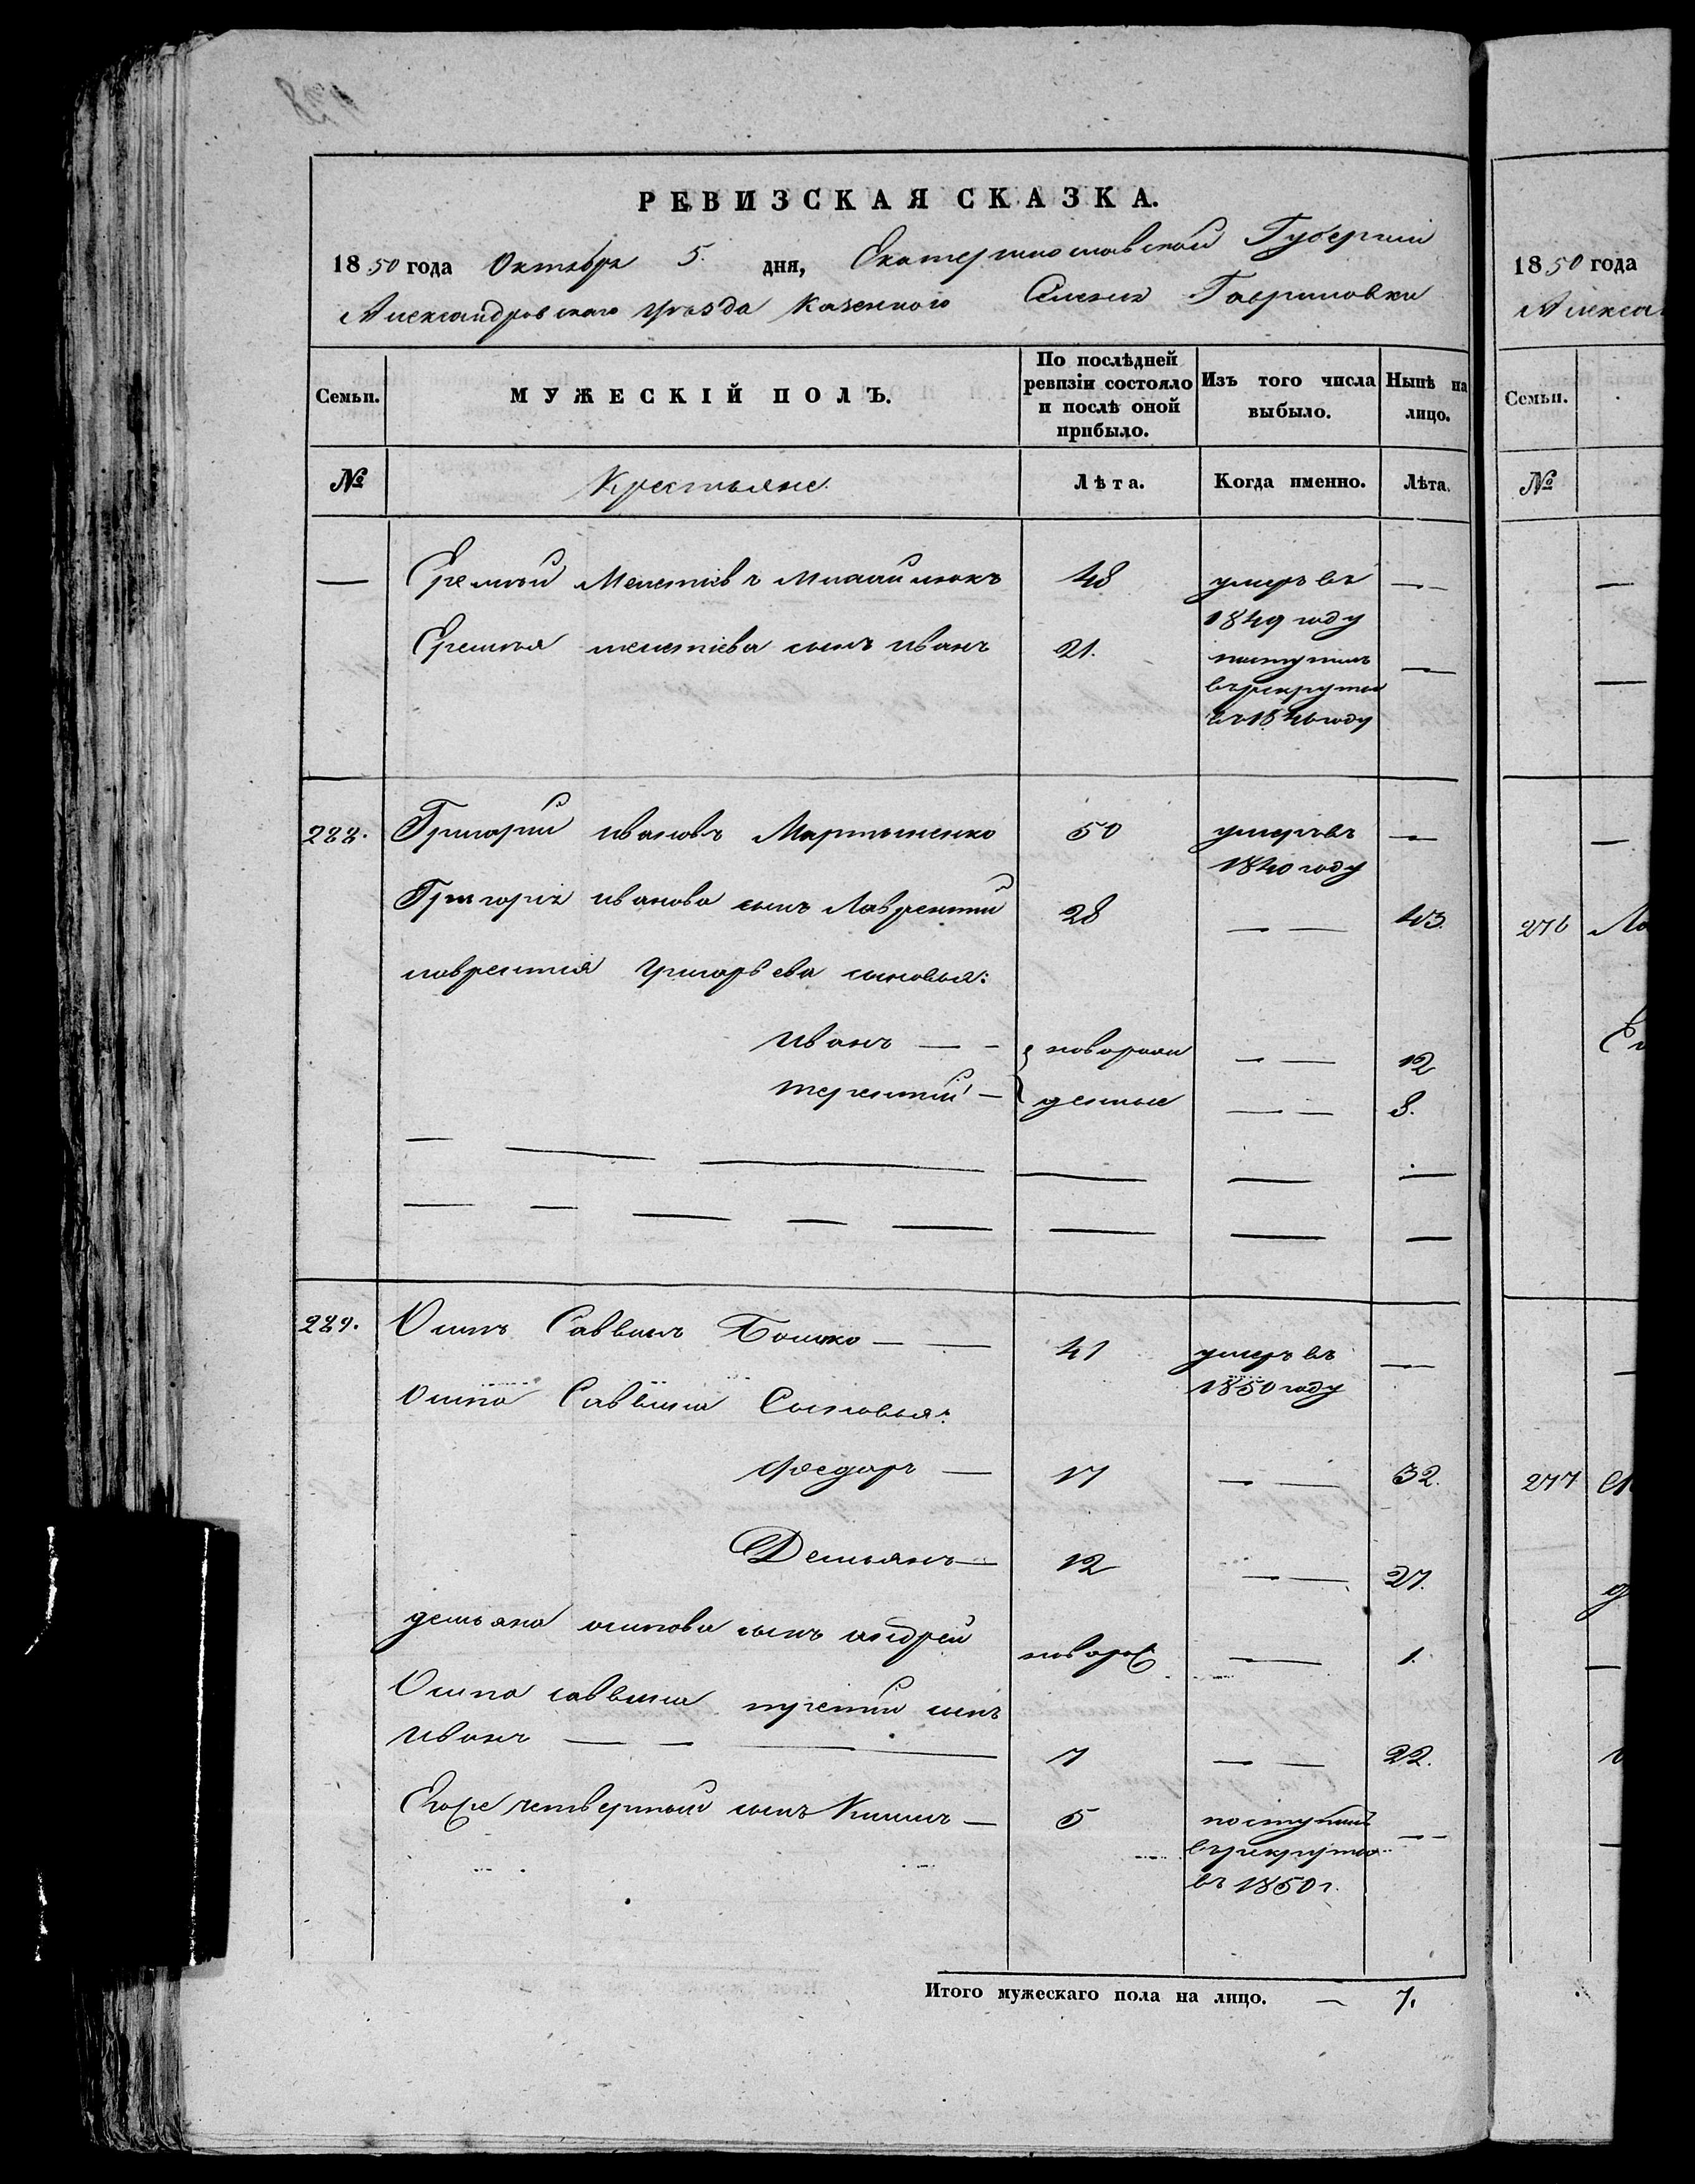 РЕВИЗСКАЯ СКАЗКА.
1850 года Октября 5. дня, Екатеринославской Губерніи
Александровскаго уѣзда Казенного Селенія Гавриловки
Семьи. МУЖЕСКІЙ ПОЛЪ. По послѣдней ревизіи состояло и послѣ оной прибыло. Изъ того числа выбыло. Нынѣ на лицо.
№ Крестьяне Лѣта. Когда именно. Лѣта.
— Еремѣй Мелетіевъ 48 умеръ въ —
1849 году
Еремѣя мелетіева сынъ иванъ 21. поступилъ —
въ рекруты
въ 1846 году
288. Григорий ивановъ Мартыненко 50 умеръ въ —
1840 году
Григорія иванова сынъ Лаврентий 28 — — 43.
лаврентия григорьева сыновья:
иванъ — - новорож — — 12
терентий — денные — — 8.
289. Осипъ Саввинъ 41 умеръ въ —
1850 году
Осипа Саввина Сыновья:
федоръ — 17 — — 32.
Демьянъ — 12 — — 27.
демьяна осипова сынъ андрей новорож — 1.
Осипа саввина третий сынъ
иванъ — — — 7 — — 22.
Егоже четвертый сынъ — 5 поступилъ —
въ рекруты
въ 1850 г.
Итого мужескаго пола на лицо. — 7.
1850 года
Алекса
Семьи.
№
276
277